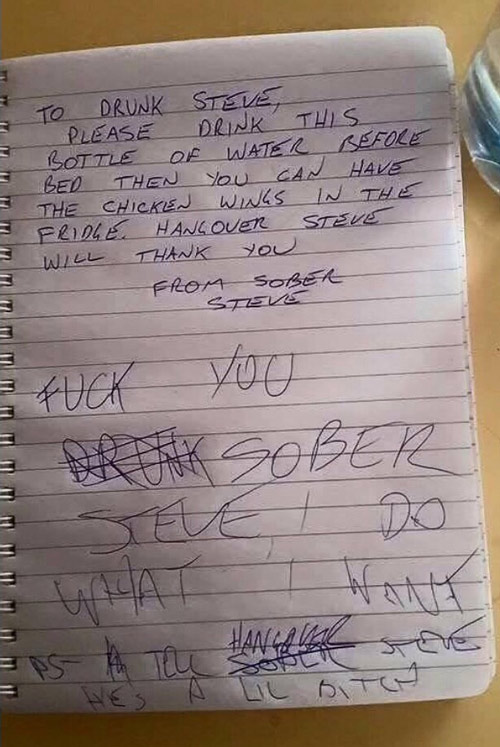 TO DRUNK STEVE,
PLEASE DRINK THIS
BOTTLE OF WATER BEFORE
BED THEN YOU CAN HAVE
THE CHICKEN WINGS IN THE
FRIDGE. HANGOVER STEVE
WILL THANK YOU
FROM SOBER
STEVE
FUCK YOU
DRUNK SOBER
STEVE, I DO
WHAT I WANT
HANGOVER
PS- TELL SOBER STEVE
HES A LIL BITCH